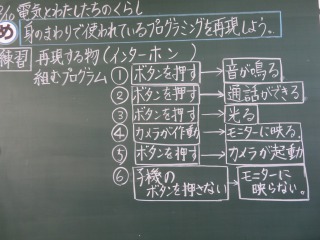 2/10 電気とわたしたちのくらし
め 身のまわりで使われているプログラミングを再現しよう。
練習 再現する物(インターホン)
組むプログラム ① ボタンを押す → 音が鳴る
② ボタンを押す → 通話ができる
③ ボタンを押す → 光る
④ カメラが作動 → モニターに映る。
⑤ ボタンを押す → カメラが起動
⑥ 子機のボタンを押さない → モニターに映らない。